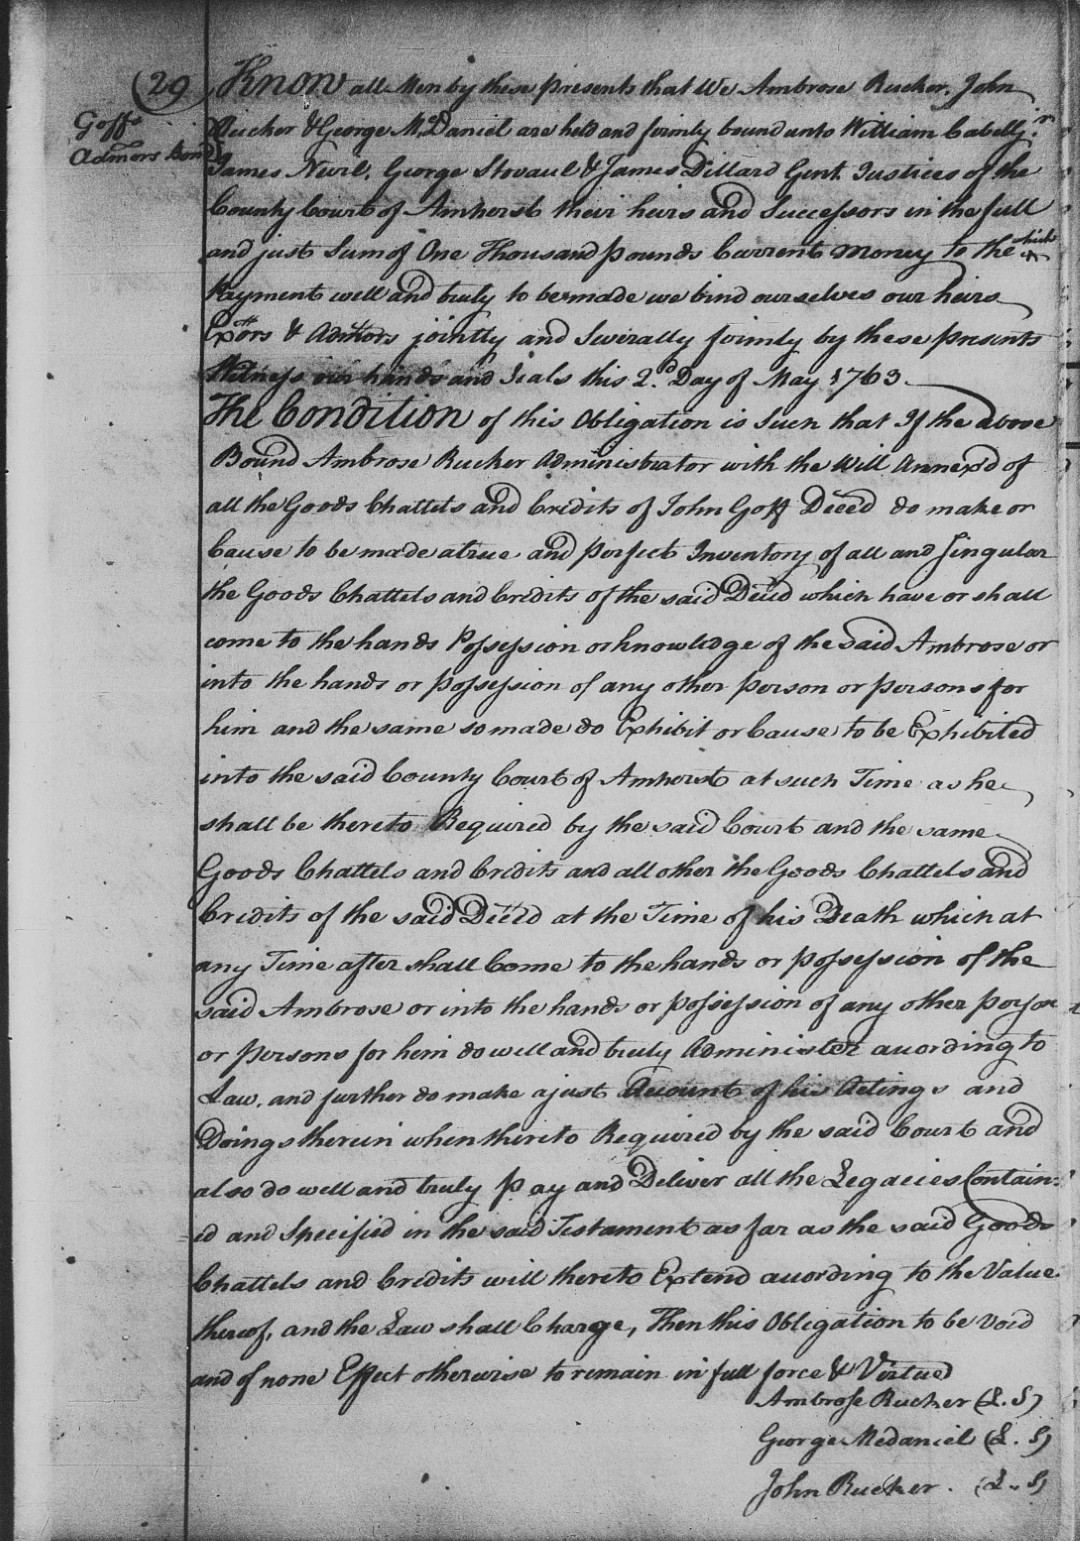 (29
Goffs
Admors Bond
Know all Men by these presents that We Ambrose Rucker, John
Rucker & George McDaniel are held and firmly bound unto William Cabell Jr.
James Nevil, George Stovaul & James Dillard Gent. Justices of the
County Court of Amherst their heirs and Successors in the full
and just Sum of One Thousand pounds Current money to the which
Payment well and truly to be made we bind ourselves our heirs
Exors & Admors jointly and Severally firmly by these presents
Witness our hands and Seals this 2d. Day of May 1763.
The Condition of this Obligation is Such that If the above
Bound Ambrose Rucker Administrator with the Will Annex'd of
all the Goods Chattels and Credits of John Goff Deced do make or
Cause to be made a true and perfect Inventory of all and Singular
the Goods Chattels and Credits of the said Deced which have or shall
come to the hands Possession or knowledge of the said Ambrose or
into the hands or possession of any other person or persons for
him and the same so made do Exhibit or Cause to be Exhibited
into the said County Court of Amherst at such Time as he
shall be thereto Required by the said Court and the same
Goods Chattels and Credits and all other the Goods Chattels and
Credits of the said Deced at the Time of his Death which at
any Time after shall Come to the hands or possession of the
said Ambrose or into the hands or possession of any other person
or persons for him do well and truly Administer according to
Law. and further do make a just Account of his Actings and
Doings therein when thereto Required by the said Court and
also do well and truly pay and Deliver all the Legacies Contain=
=ed and Specified in the said Testament as far as the said Goods
Chattels and Credits will thereto Extend according to the Value
thereof, and the Law shall Charge, Then this Obligation to be void
and of none Effect otherwise to remain in full force & Virtue
Ambrose Rucker (L.S)
George Medaniel (L.S)
John Rucker. (L.S)